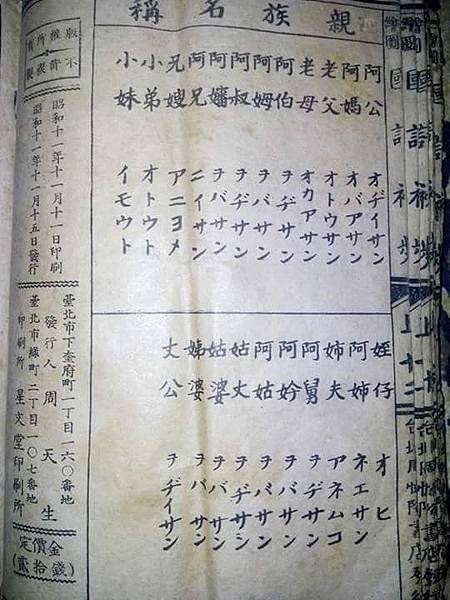 繪圖 國語初步
親族名稱
阿公 オヂイサン
阿媽 オバアサン
老父 オトウサン
老母 オカアサン
阿伯 ヲヂサン
阿姆 ヲバサン
阿叔 ヲヂサン
阿嬸 ヲバサン
阿兄 ニイサン
兄嫂 アニヨメ
小弟 オトウト
小妹 イモウト
姪仔 オヒ
阿姉 ネエサン
姉夫 アネムコ
阿舅 ヲヂサン
阿妗 ヲバサン
阿姑 ヲバサン
姑丈 ヲヂサン
姑婆 ヲバサン
ヲバサン
丈公 ヲヂイサン
不許複製
版權所有
昭和十一年十一月十一日印刷
昭和十一年十一月十五日發行
臺北市下奎府町一丁目一六〇番地
發行人 周天生
臺北市綠町二丁目一〇七番地
印刷所 星文堂印刷所
定價金
(貳拾錢)